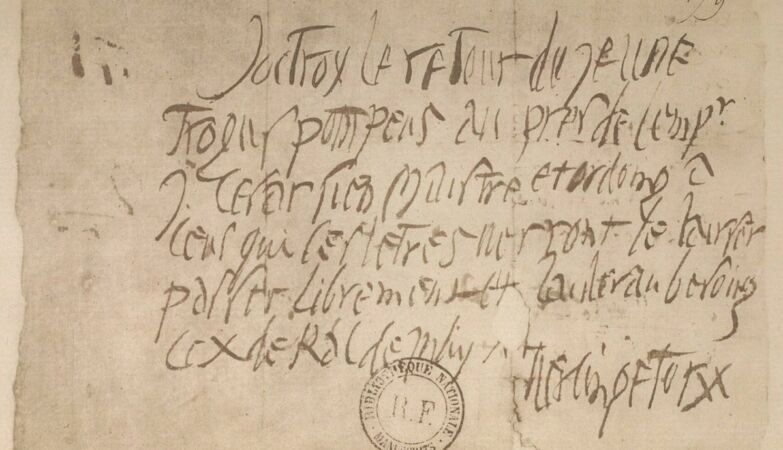 Joctroy le retour du jeune
Trogus pompeus au pres de lempr
J. Cesar sien Maistre et ordong a
ceus qui ces letres verront le laisser
passer librement et laider au besoing
ce X de Kal de
Vercingetorix
BIBLIOTHÈQUE NATIONALE
R.F.
MANUSCRITS